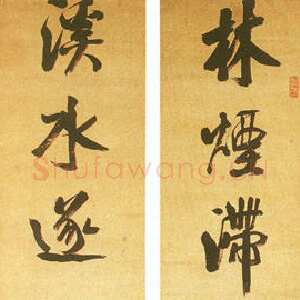 林煙滯
溪水遂
Shufawang.cn